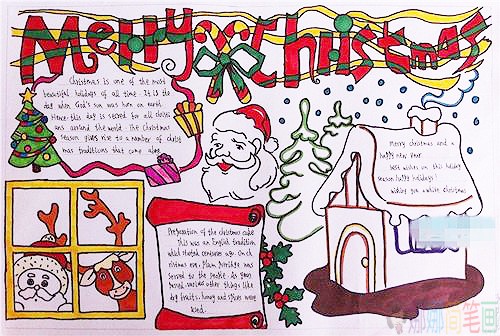 Merry Christmas
Christmas is one of the most
beautiful holidays of all time. It is the
day when God's son was born on earth.
Hence this day is sacred to all christi
ans around the world. The Christmas
season gives rise to a number of christ
mas traditions that come along
Merry christmas and a
happy new year
best wishes on this holiday
season. happy holidays!
wishing you a white christmas
Preparation of the christmas cake
This was an English tradition,
which started centuries ago. On ch
ristmas eve, Plum Porridge was
served to the people. As years
passed, various other things like
dry fruits, honey and spices were
used.
娜娜简笔画